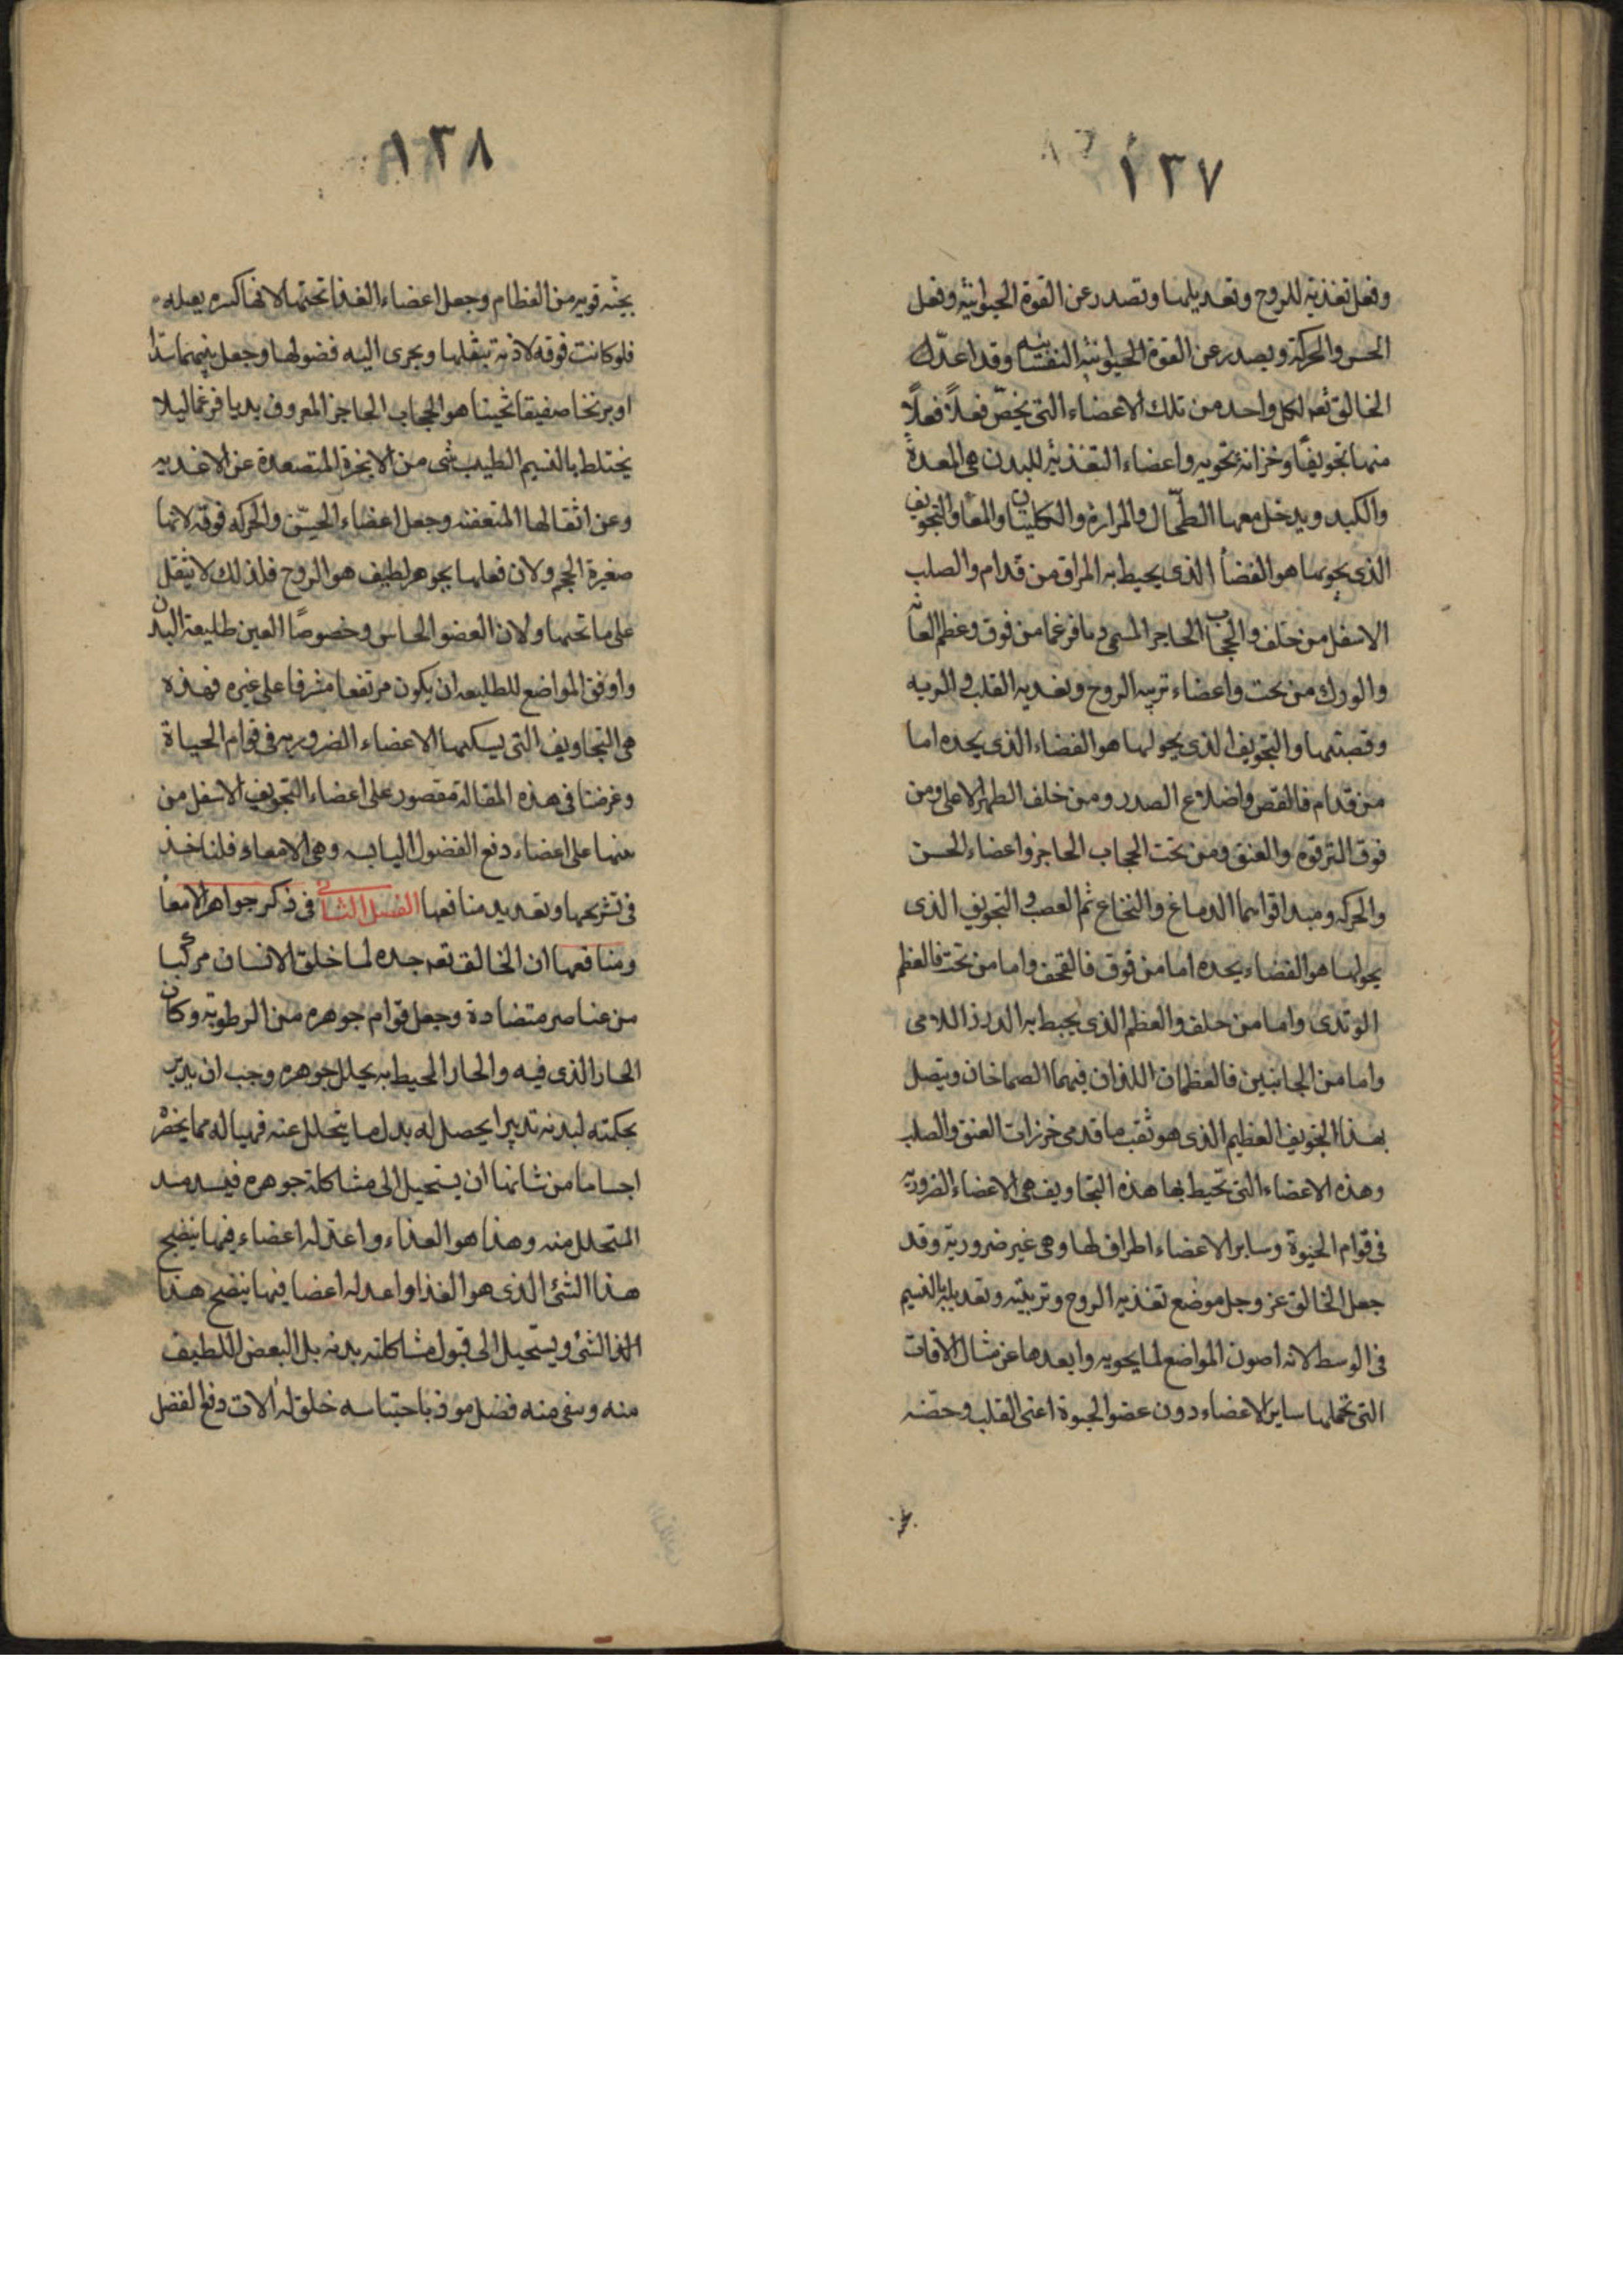 ١٣٧
وفعل تغذية للروح وتعديلها وتصدر عن القوة الحيوانية وفعل
الحس والحركة ويصدر عن القوة الحيوانية النفسانية وقد اعدّ لك
الخالق تعه لكل واحد من تلك الاعضاء التي يخصّ فعلاً فعلاً
منها تجويفاً وخزانة تحويه واعضاء التغذية للبدن هي المعدة
والكبد ويدخل معها الطحال والمرارة والكليتان والمعا والتجويف
الذي يحويها هو الفضأ الذي يحيط به المراق من قدام والصلب
الاسفل من خلف والحجاب الحاجز المسمى ديافرغما من فوق وعظم العانة
والورك من تحت واعضاء تربيه الروح وتغديه القلب والريه
وقصبتها والتجويف الذي يحولها هو الفضاء الذي يحده اما
من قدام فالقص واضلاع الصدر ومن خلف الظهر الاعلى ومن
فوق الترقوه والعنق ومن تحت الحجاب الحاجز واعضاء الحسن
والحركه ومبدا قوامها الدماغ والنخاع ثم العصب والتجويف الذي
يحولها هو الفضاء يحده اما من فوق فالقحف واما من تحت فالعظم
الوتدى واما من خلف والعظم الذي يحيط به الدرز اللامى
واما من الجانبين فالعظمان اللذان فيهما الصماخان ويتصل
بهذا التجويف العظيم الذي هو ثقب ما قدمى خرزات العنق والصلب
وهذه الاعضاء التي تحيط بها هذه التجاويف هي الاعضاء الضرورية
في قوام الحيوة وساير الاعضاء اطراف لها وهي غير ضرورية وقد
جعل الخالق عز وجل موضع تغذيه الروح وتربيته وتعديله بالنسيم
في الوسط لانه اصون المواضع لما يحويه وابعدها عن منال الافات
التي تحملها ساير الاعضاء دون عضو الحيوة اعنى القلب وحصّنه
١٣٨
بجنّه قويه من العظام وجعل اعضاء الغذا تحتها لانها
فلو كانت فوقه لاذته بثقلها ويجرى اليه فضولها وجعل بينهما
صفيقا ثخينا هو الحجاب الحاجز المعروف بديافرغما ليلا
يختلط بالنسيم الطيب شى من الابخرة المتصعدة عن الاغديه
وعن اثقالها المتعفنه وجعل اعضاء الحسّ والحركه فوقه لانها
صغيرة الحجم ولان فعلها بجوهر لطيف هو الروح فلذلك لا يثقل
على ما تحتها ولان العضو الحاس وخصوصًا العين طليعة البدن
واوفق المواضع للطليعه ان يكون مرتفعا مشرفا على غيره فهذه
هي التجاويف التي يسكنها الاعضاء الضروريه في قوام الحياة
وغرضنا في هذه المقالة مقصور على اعضاء التجويف الاسفل من
منها على اعضاء دفع الفضول اليابسه وهي الامعاء فلناخذ
في تشريحها وتعديد منافعها الفصل الثانى في ذكر جواهر الامعا
ومنافعها ان الخالق تعه جده لما خلق الانسان مركبا
من عناصر متضادة وجعل قوام جوهره من الرطوبة وكان
الحار الذي فيه والحار المحيط به يحلل جوهره وجب ان يدبر
بحكمته لبدنه تدبيرا يحصل له بدل ما يتحلل عنه فهيا له مما
اجساما من شانها ان يستحيل الى مشاكلة جوهره فيسد مسد
المتحلل منه وهذا هو العذاء واعد له اعضاء فيها ينضج
هذا الشئ الذي هو الغذا واعد له اعضا فيها ينضج هذا
الشئ ويستحيل الى قبول مشاكلته بدنه بل البعض اللطيف
منه وينفى منه فضل موذ باحتباسه خلق له الات دفع الفضل